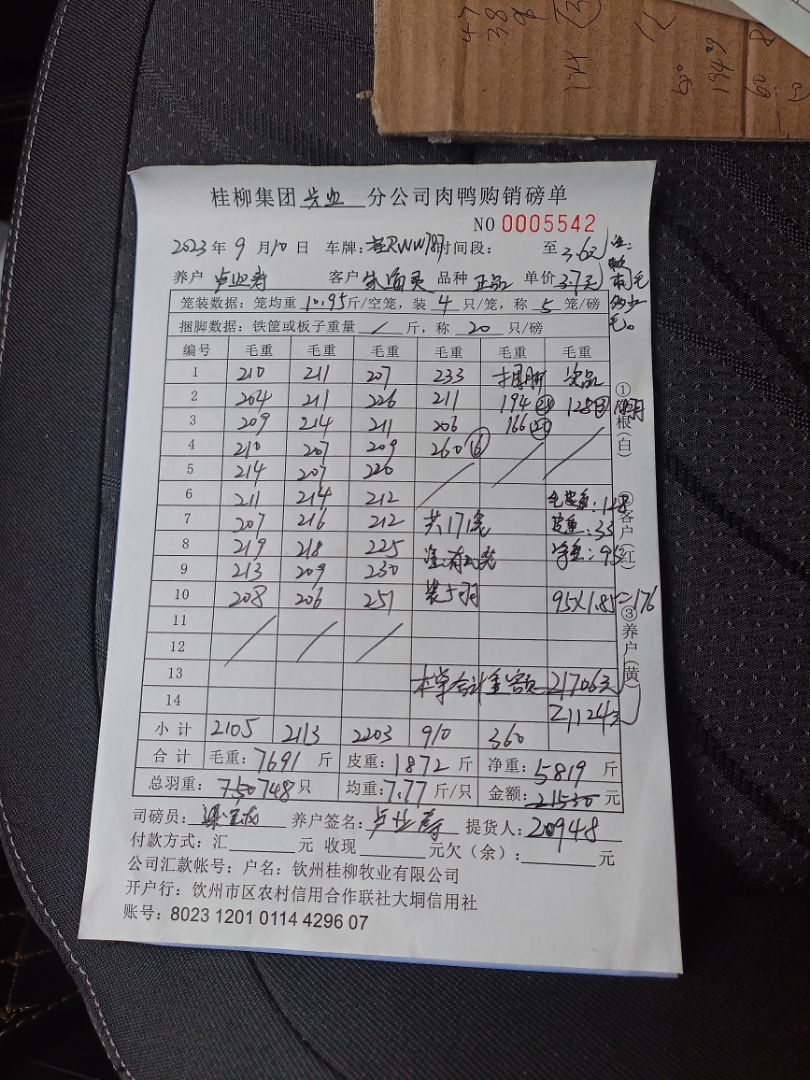 桂柳集团 分公司肉鸭购销磅单
NO 0005542
2023年9月10日 车牌:桂RWW787 时间段: 至 3.6元
养户 卢业寿 客户 品种 正品 单价 3.7元
笼装数据:笼均重 10.95 斤/空笼,装 4 只/笼,称 5 笼/磅
捆脚数据:铁筐或板子重量 / 斤,称 20 只/磅
编号 毛重 毛重 毛重 毛重 毛重 毛重
1 210 211 207 233 捆脚 次品
2 204 211 226 211 194 128
3 209 214 211 206 166
4 210 207 209 260
5 214 207 220
6 211 214 212 毛重:128
7 207 216 212 共171笼 皮重:33
8 219 218 225 净重:95
9 213 209 230
10 208 206 251 装5羽 95×1.85=176
11
12
13 本单合计金额 21706元
14 21124元
小计 2105 2113 2203 910 360
合计 毛重:7691 斤 皮重:1872 斤 净重:5819 斤
总羽重:750748只 均重:7.77斤/只 金额:21530 元
司磅员: 养户签名:卢业寿 提货人:20948
付款方式:汇 元 收现 元欠(余): 元
公司汇款帐号:户名:钦州桂柳牧业有限公司
开户行:钦州市区农村信用合作联社大垌信用社
账号:8023 1201 0114 4296 07
①存根(白)
②客户(红)
③养户(黄)